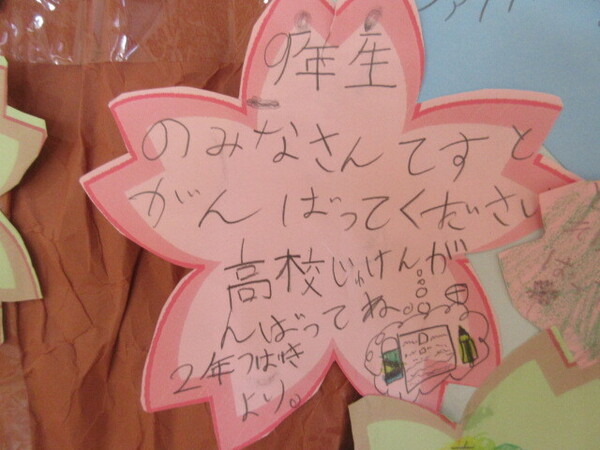 9年生
のみなさんてすと
がんばってください
高校じゅけんが
んばってね。
2年つばき
より。